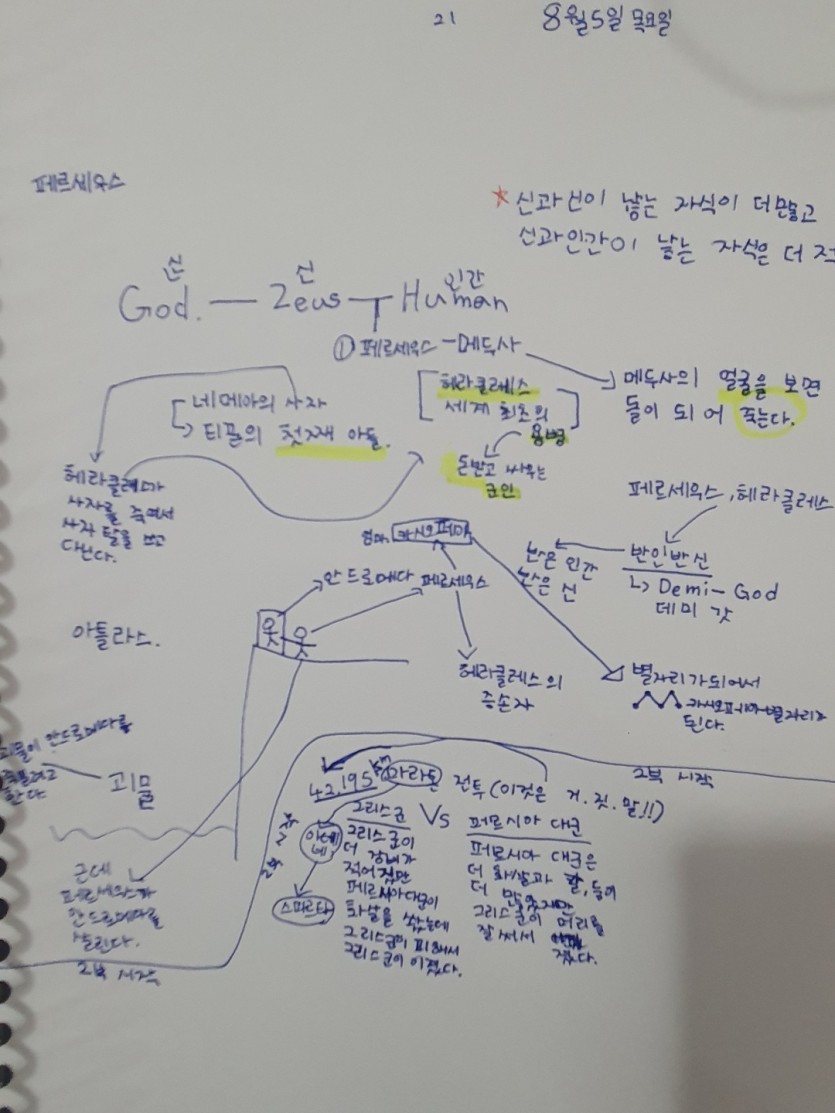 21
8월5일 목요일
페르세우스
* 신과신이 낳는 자식이 더많고
신과인간이 낳는 자식은 더 적
신
신
인간
God. — Zeus — Human
① 페르세우스 - 메두사
메두사의 얼굴을 보면
돌이 되어 죽는다.
네메아의 사자
티폰의 첫째 아들.
헤라클레스
세계 최초의
용병
돈받고 싸우는
군인
헤라클레스가
사자를 죽여서
사자 탈을 쓰고
다닌다.
페르세우스, 헤라클레스
반인반신
Demi-God
데미 갓
반은 인간
반은 신
엄마. 카시오페아
안드로메다
페르세우스
헤라클레스의
증손자
별자리가되어서
카시오페아 별자리가
된다.
아틀라스.
괴물이 안드로메다를
한다
괴물
근데
페르세우스가
안드로메다를
살린다.
2부 시작
2부 시작
42,195km
마라톤 전투 (이것은 거.짓.말!!)
그리스군 Vs 페르시아 대군
아테네
스파르타
그리스군이
더 장비가
적어졌지만
페르시아대군이
화살을 쐈는데
그리스군이 피해서
그리스군이 이겼다.
페르시아 대군은
더 화살과 칼, 등이
더 많았지만
그리스군이 머리를
잘 써서
졌다.